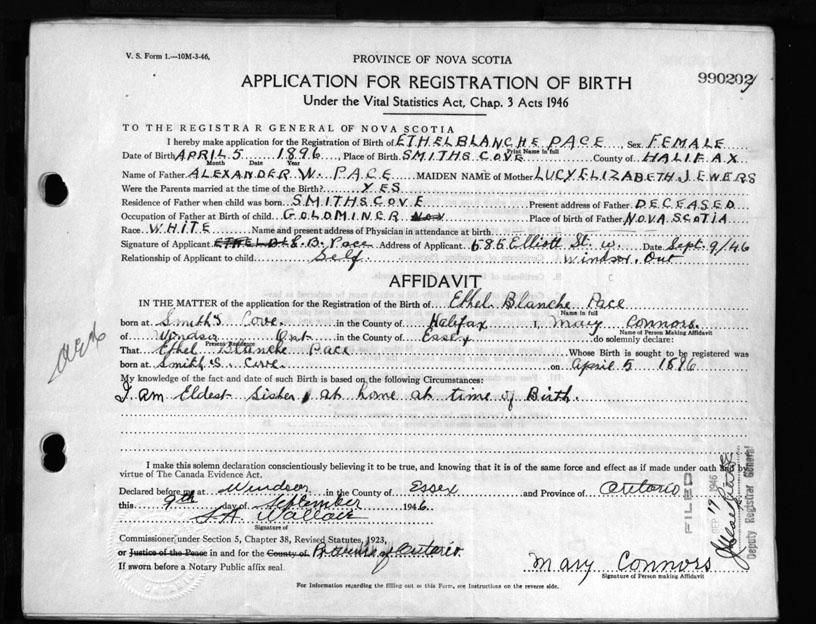 V. S. Form 1.—10M-3-46.
PROVINCE OF NOVA SCOTIA
990202
APPLICATION FOR REGISTRATION OF BIRTH
Under the Vital Statistics Act, Chap. 3 Acts 1946
TO THE REGISTRAR GENERAL OF NOVA SCOTIA
I hereby make application for the Registration of Birth of ETHEL BLANCHE PACE Sex FEMALE
Print Name in full
Date of Birth APRIL 5 1896 Place of Birth SMITHS COVE County of HALIFAX
Month Date Year
Name of Father ALEXANDER W. PACE MAIDEN NAME of Mother LUCY ELIZABETH JEWERS
Were the Parents married at the time of Birth? YES
Residence of Father when child was born SMITHS COVE Present address of Father DECEASED
Occupation of Father at Birth of child GOLDMINER Place of birth of Father NOVA SCOTIA
Race WHITE Name and present address of Physician in attendance at birth
Signature of Applicant E. B. Pace Address of Applicant 686 Elliott St. W. Date Sept. 9/46
Relationship of Applicant to child Self Windsor, Ont
AFFIDAVIT
IN THE MATTER of the application for the Registration of the Birth of Ethel Blanche Pace
Name in full
born at Smith's Cove in the County of Halifax I, Mary Connors
Name of Person Making Affidavit
of Windsor Ont in the County of Essex do solemnly declare:
Present Residence
That Ethel Blanche Pace Whose Birth is sought to be registered was
born at Smith's Cove on April 5 1896
My knowledge of the fact and date of such Birth is based on the following Circumstances:
I am Eldest Sister, at home at time of Birth.
I make this solemn declaration conscientiously believing it to be true, and knowing that it is of the same force and effect as if made under oath and by
virtue of The Canada Evidence Act.
Declared before me at Windsor in the County of Essex and Province of Ontario
this 9th day of September 1946
S. A. Wallace
Signature of
Commissioner under Section 5, Chapter 38, Revised Statutes, 1923,
or Justice of the Peace in and for the County of Province of Ontario
If sworn before a Notary Public affix seal
Mary Connors
Signature of Person making Affidavit
For Information regarding the filling out of this Form, see Instructions on the reverse side.
FILED
17 1946
Deputy Registrar General